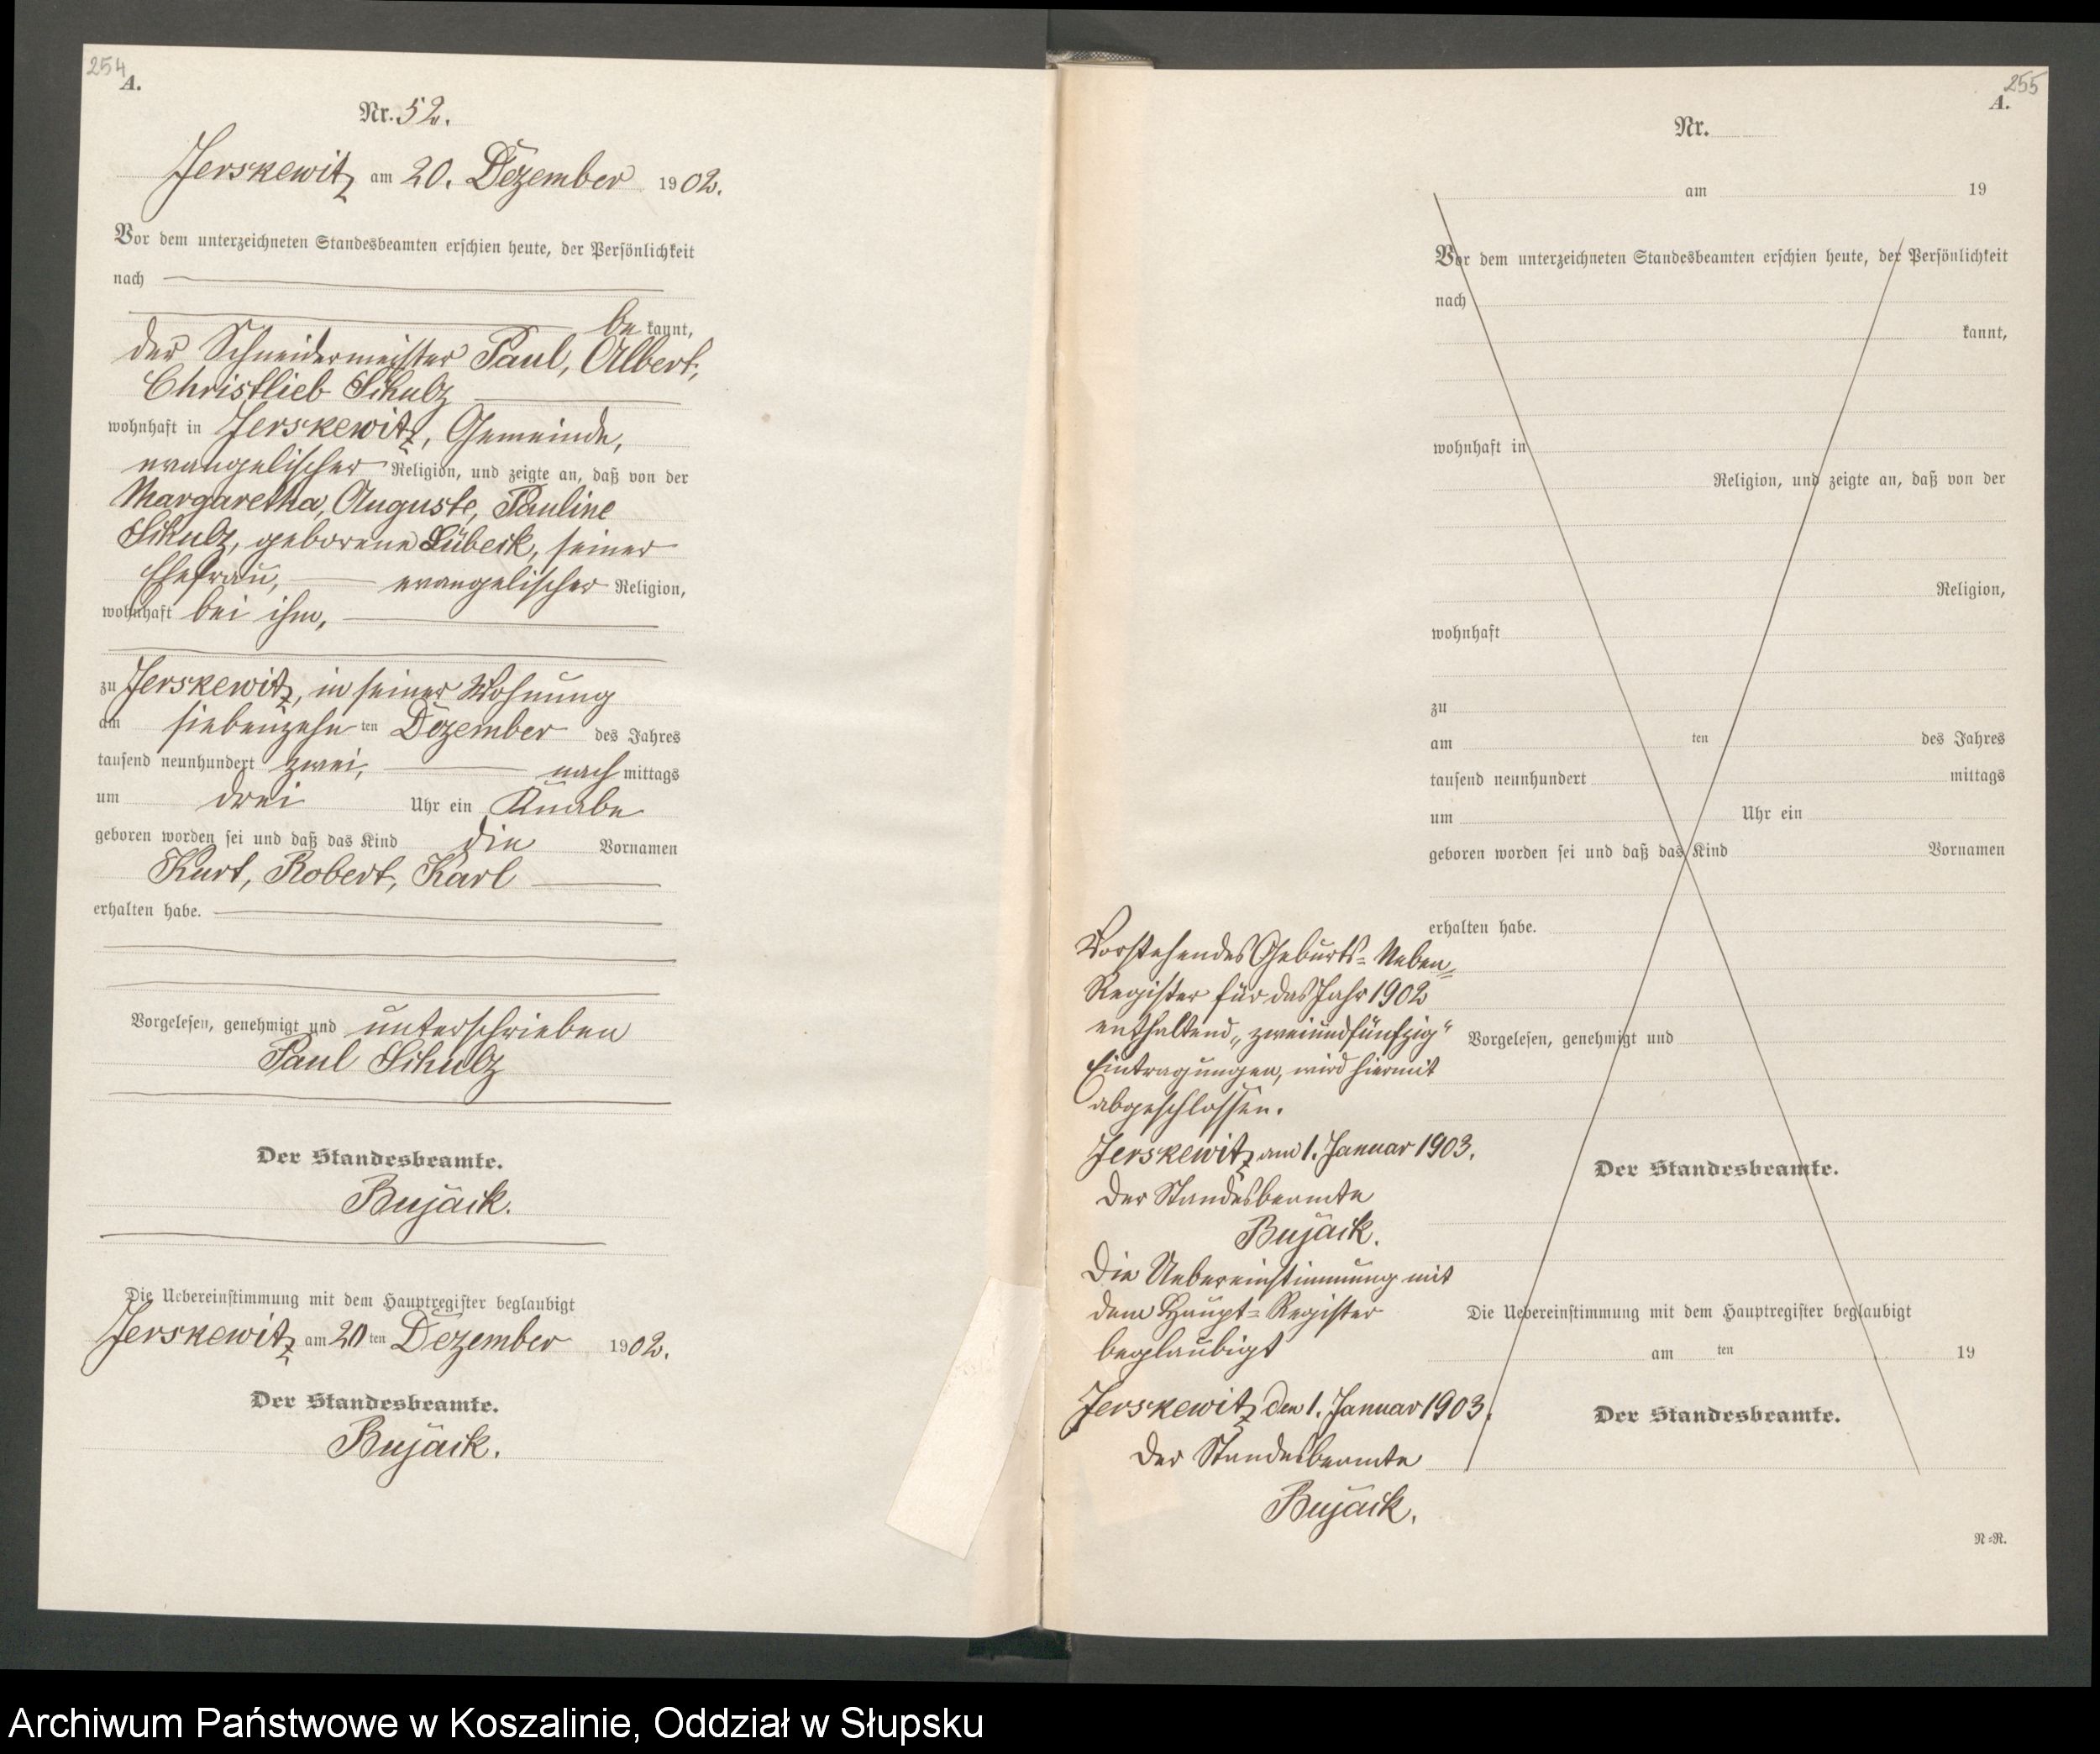 254
A.
Nr. 52.
Jerskewitz am 20. Dezember 1902.
Vor dem unterzeichneten Standesbeamten erschien heute, der Persönlichkeit
nach
be kannt,
der Schneidermeister Paul, Albert,
Christlieb Schulz
wohnhaft in Jerskewitz, Gemeinde,
evangelischer Religion, und zeigte an, daß von der
Margaretha, Auguste, Pauline
Schulz, geborene Lübeck, seiner
Ehefrau, evangelischer Religion,
wohnhaft bei ihm,
zu Jerskewitz, in seiner Wohnung
am siebenzehn ten Dezember des Jahres
tausend neunhundert zwei, nach mittags
um drei Uhr ein Knabe
geboren worden sei und daß das Kind die Vornamen
Kurt, Robert, Karl
erhalten habe.
Vorgelesen, genehmigt und unterschrieben
Paul Schulz
Der Standesbeamte.
Bujack.
Die Uebereinstimmung mit dem Hauptregister beglaubigt
Jerskewitz am 20 ten Dezember 1902.
Der Standesbeamte.
Bujack.
255
A.
Nr.
am 19
Vor dem unterzeichneten Standesbeamten erschien heute, der Persönlichkeit
nach
kannt,
wohnhaft in
Religion, und zeigte an, daß von der
Religion,
wohnhaft
zu
am ten des Jahres
tausend neunhundert mittags
um Uhr ein
geboren worden sei und daß das Kind Vornamen
erhalten habe.
Vorgelesen, genehmigt und
Der Standesbeamte.
Die Uebereinstimmung mit dem Hauptregister beglaubigt
am ten 19
Der Standesbeamte.
N=R.
Vorstehendes Geburts=Neben=
Register für das Jahr 1902
enthaltend „zweiundfünfzig“
Eintragungen, wird hiermit
abgeschlossen.
Jerskewitz am 1. Januar 1903.
Der Standesbeamte
Bujack.
Die Uebereinstimmung mit
dem Haupt=Register
beglaubigt
Jerskewitz den 1. Januar 1903.
Der Standesbeamte
Bujack.
Archiwum Państwowe w Koszalinie, Oddział w Słupsku